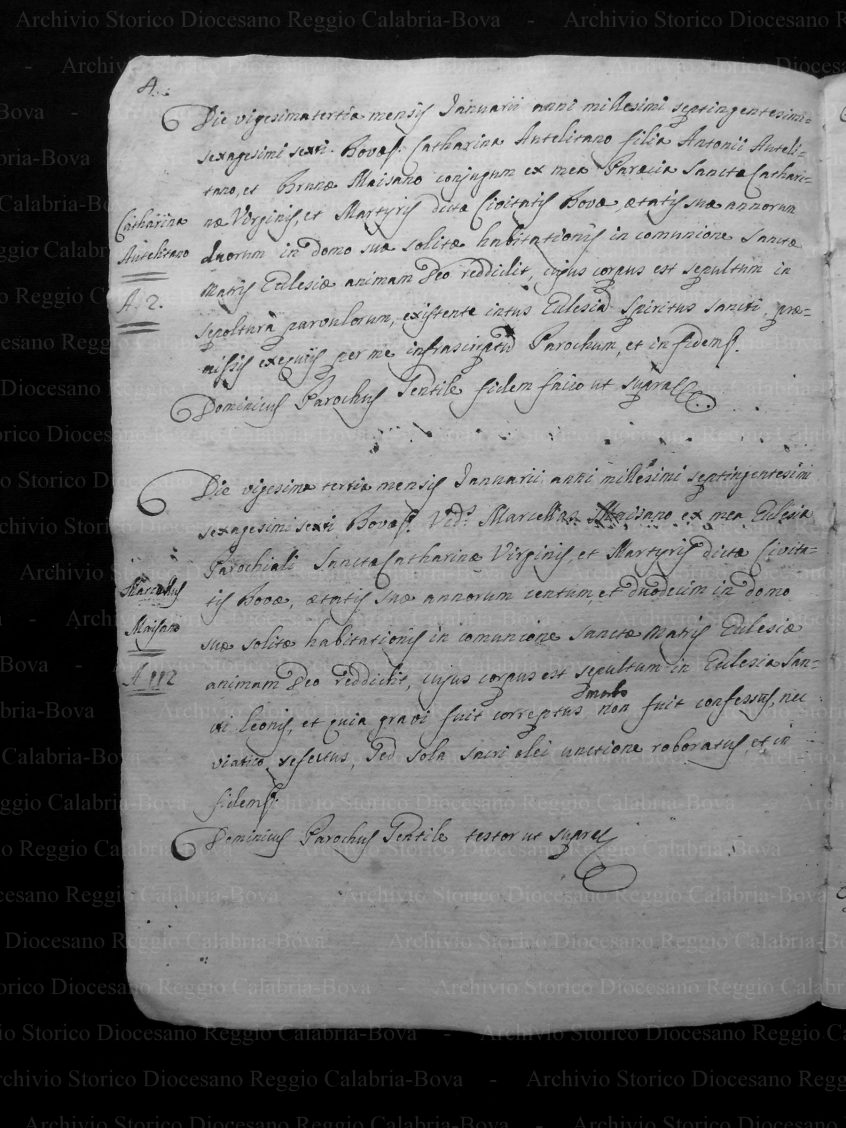 4.
Die vigesimatertia mensis Januarii anni millesimi septingentesimi=
sexagesimi sexti. Bovae. Catharina Autelitano filia Antonii Auteli-
tano, et Brunae Maisano conjugum ex mea Paraecia Sanctae Cathari-
nae Virginis, et Martyris dictae Civitatis Bovae, aetatis suae annorum
duorum in domo suae solitae habitationis in comunione Sanctae
Matris Ecclesiae animam Deo reddidit, cujus corpus est sepultum in
sepoltura parvulorum, existente intus Eclesia Spiritus Sancti, prae=
missis exequiis per me infrascriptum Parochum, et in fidem.
Dominicus Parochus Gentile fidem facio ut supra
Catharina
Autelitano
A. 2.
Die vigesima tertia mensis Januarii anni millesimi septingentesimi
sexagesimi sexti Bovae. Marcellus Maisano ex mea Eclesia
Parochiali Sanctae Catharinae Virginis, et Martyris dictae Civita-
tis Bovae, aetatis suae annorum centum, et duodecim in domo
suae solitae habitationis in comunione Sanctae Matris Eclesiae
animam Deo reddidit, cujus corpus est sepultum in Eclesia San-
cti Leonis, et quia gravi fuit correptus morbo non fuit confessus, nec
viatico refectus, sed sola sacri olei unctione roboratus, et in
fidem.
Dominicus Parochus Gentile testor ut supra
Marcellus
Maisano
A 112
Archivio Storico Diocesano Reggio Calabria-Bova